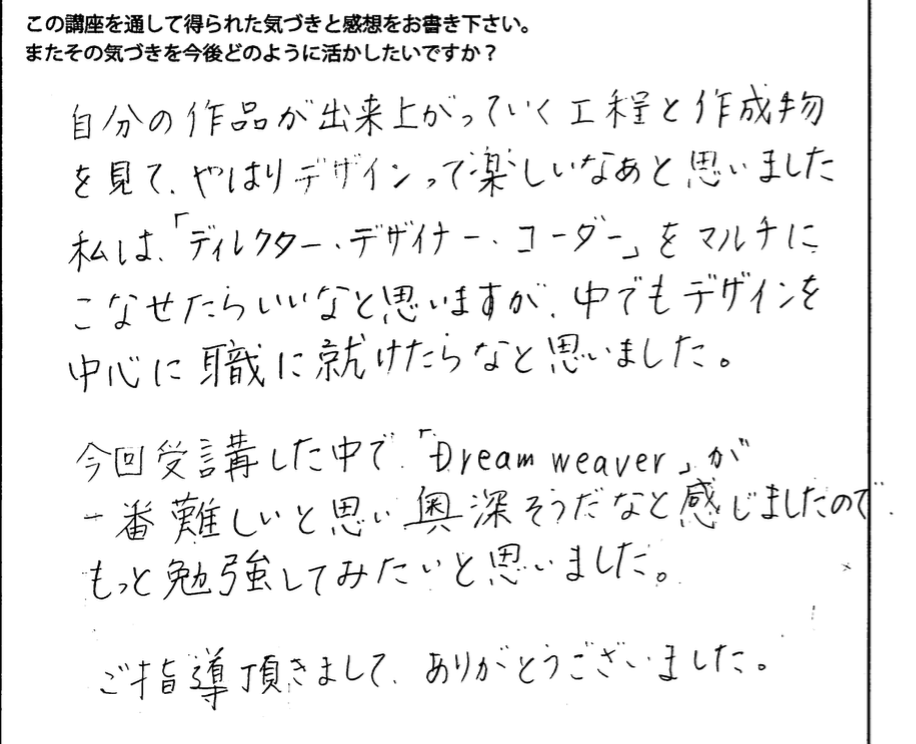 この講座を通して得られた気づきと感想をお書き下さい。
またその気づきを今後どのように活かしたいですか？
自分の作品が出来上がっていく工程と作成物
を見て、やはりデザインって楽しいなあと思いました
私は、「ディレクター、デザイナー、コーダー」をマルチに
こなせたらいいなと思いますが、中でもデザインを
中心に職に就けたらなと思いました。
今回受講した中で、「Dream weaver」が
一番難しいと思い奥深そうだなと感じましたので、
もっと勉強してみたいと思いました。
ご指導頂きまして、ありがとうございました。